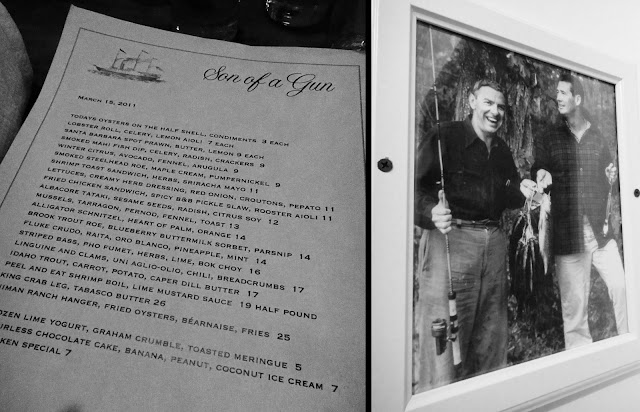 Son of a Gun
March 15, 2011
TODAYS OYSTERS ON THE HALF SHELL, CONDIMENTS 3 EACH
LOBSTER ROLL, CELERY, LEMON AIOLI 7 EACH
SANTA BARBARA SPOT PRAWN, BUTTER, LEMON 9 EACH
SMOKED MAHI FISH DIP, CELERY, RADISH, CRACKERS 9
WINTER CITRUS, AVOCADO, FENNEL, ARUGULA 9
SMOKED STEELHEAD ROE, MAPLE CREAM, PUMPERNICKEL 9
SHRIMP TOAST SANDWICH, HERBS, SRIRACHA MAYO 11
LETTUCES, CREAMY HERB DRESSING, RED ONION, CROUTONS, PEPATO 11
FRIED CHICKEN SANDWICH, SPICY B&B PICKLE SLAW, ROOSTER AIOLI 11
ALBACORE TATAKI, SESAME SEEDS, RADISH, CITRUS SOY 12
MUSSELS, TARRAGON, PERNOD, FENNEL, TOAST 13
ALLIGATOR SCHNITZEL, HEART OF PALM, ORANGE 14
BROOK TROUT ROE, BLUEBERRY BUTTERMILK SORBET, PARSNIP 14
FLUKE CRUDO, RAITA, ORO BLANCO, PINEAPPLE, MINT 14
STRIPED BASS, PHO FUMET, HERBS, LIME, BOK CHOY 16
LINGUINE AND CLAMS, UNI AGLIO-OLIO, CHILI, BREADCRUMBS 17
IDAHO TROUT, CARROT, POTATO, CAPER DILL BUTTER 17
PEEL AND EAT SHRIMP BOIL, LIME MUSTARD SAUCE 19 HALF POUND
KING CRAB LEG, TABASCO BUTTER 26
RANCH HANGER, FRIED OYSTERS, BÉARNAISE, FRIES 25
OZEN LIME YOGURT, GRAHAM CRUMBLE, TOASTED MERINGUE 5
URLESS CHOCOLATE CAKE, BANANA, PEANUT, COCONUT ICE CREAM 7
KEN SPECIAL 7